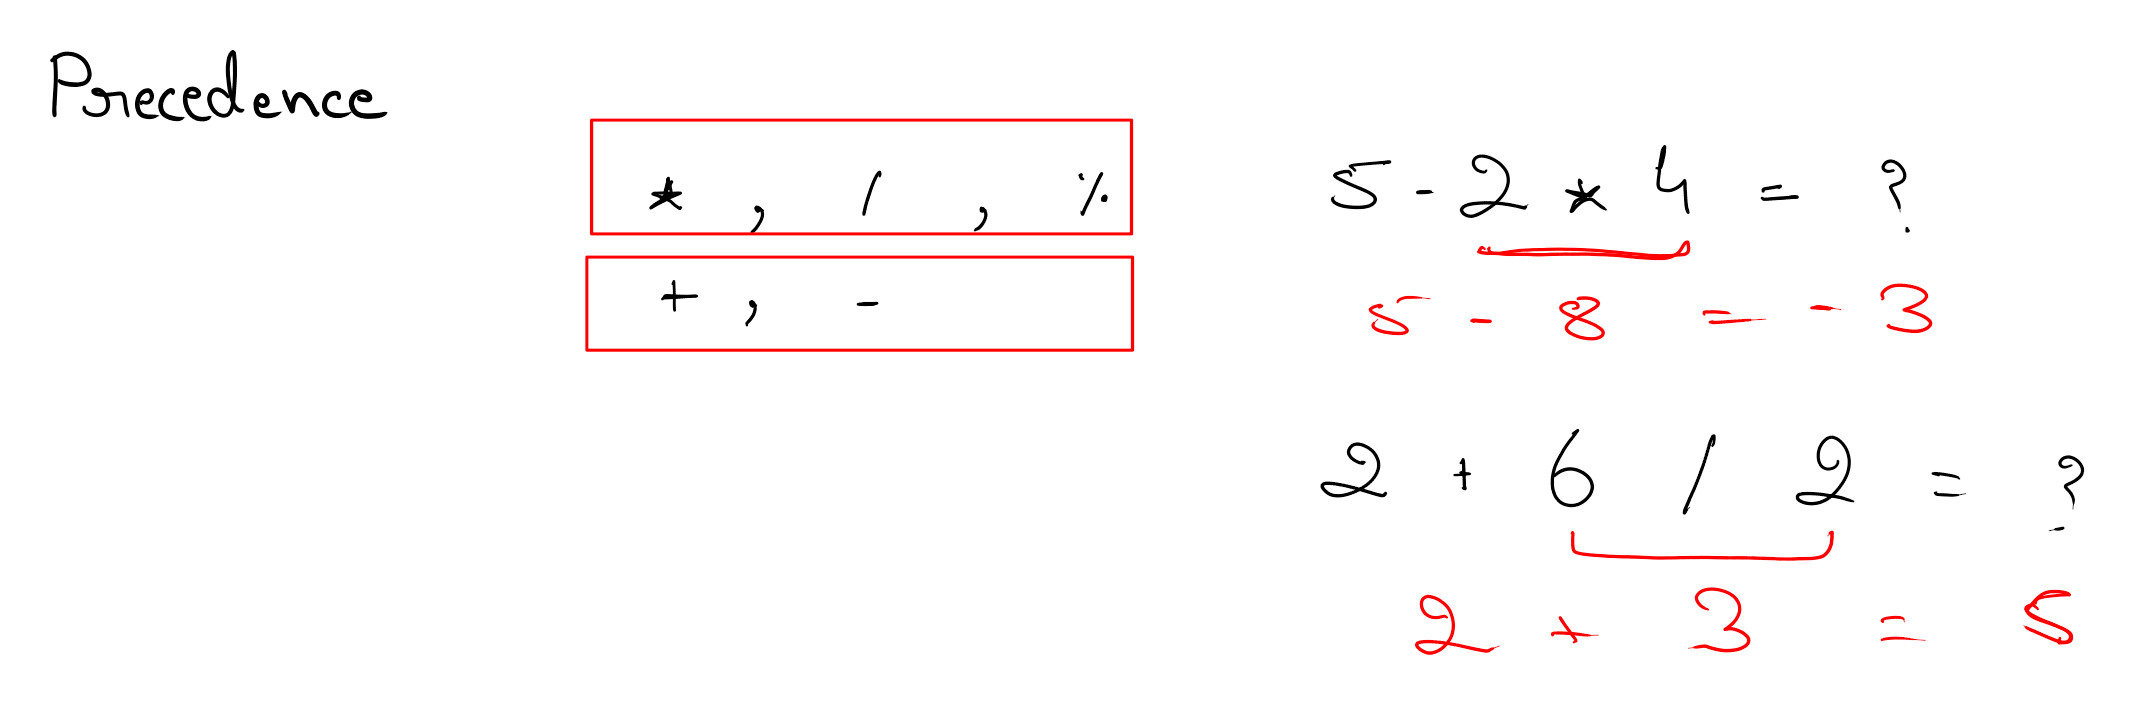 Precedence
* , / , %
+ , -
5 - 2 * 4 = ?
5 - 8 = - 3
2 + 6 / 2 = ?
2 + 3 = 5